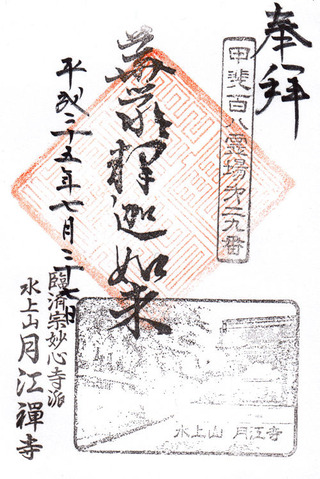 奉拝
甲斐百八霊場第二九番
華厳釋迦如来
平成二十五年七月二十七日
臨済宗妙心寺派
水上山月江禅寺
水上山 月江寺